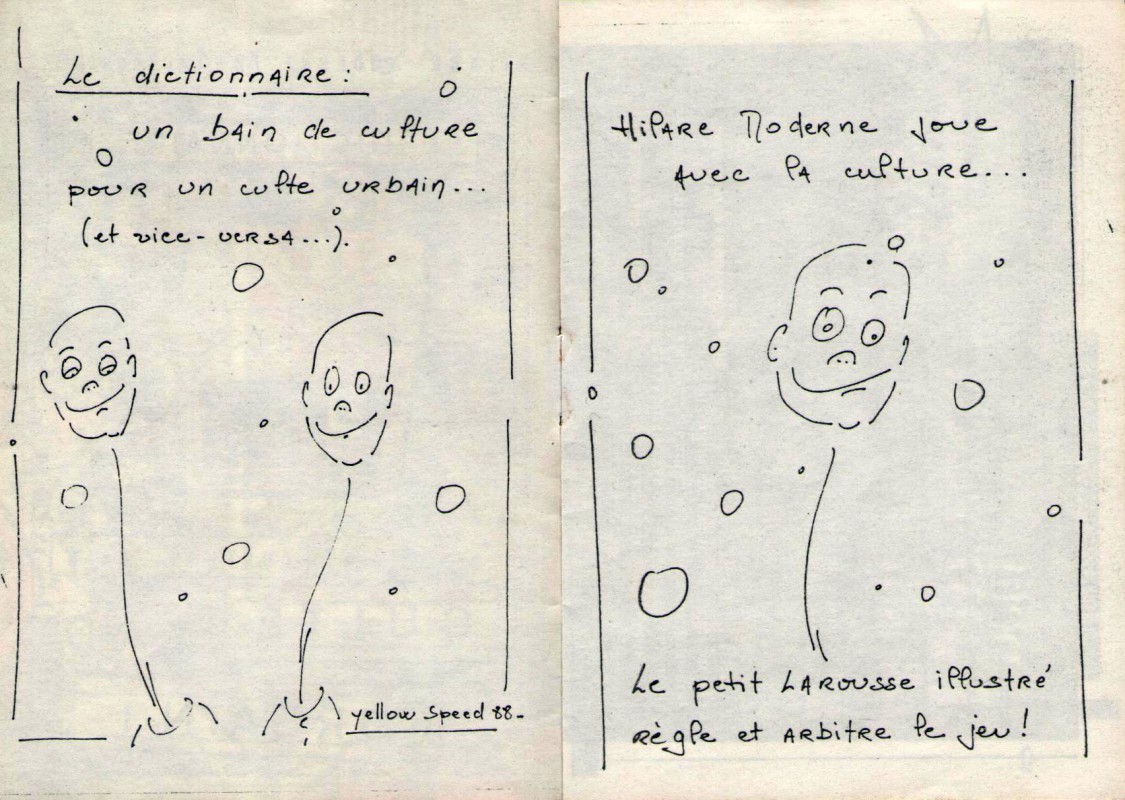 Le dictionnaire :
un bain de culture
pour un culte urbain...
(et vice-versa...).
yellow speed 88-
Hilare Moderne joue
avec la culture...
Le petit Larousse illustré
règle et arbitre le jeu !